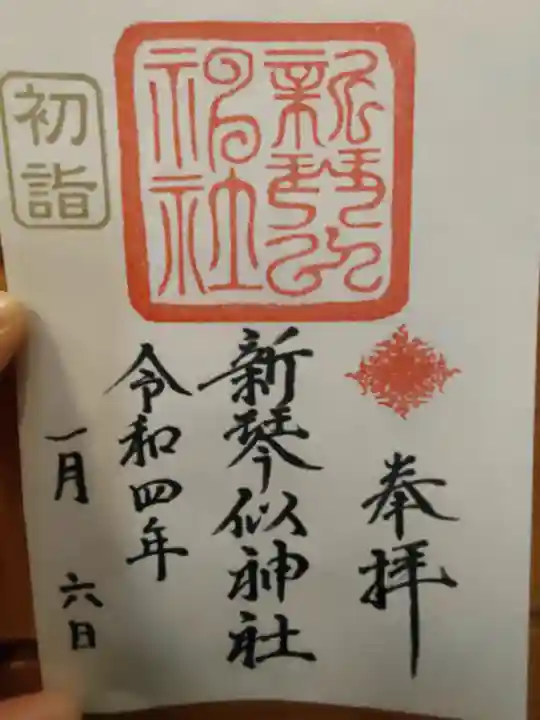 奉拝
新琴似神社
令和四年
一月 六日
新琴似
神社
初詣